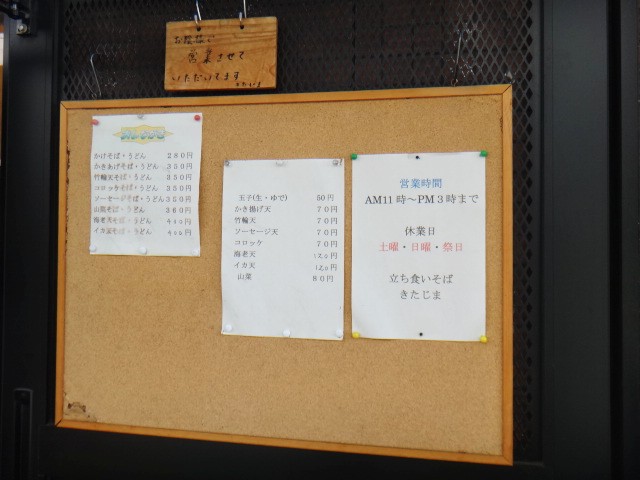 お陰様で
営業させて
いただいてます
きたじま
かけそば・うどん 280円
かきあげそば・うどん 350円
竹輪天そば・うどん 350円
コロッケそば・うどん 350円
ソーセージそば・うどん 350円
山菜そば・うどん 360円
海老天そば・うどん 400円
イカ天そば・うどん 400円
玉子(生・ゆで) 50円
かき揚げ天 70円
竹輪天 70円
ソーセージ天 70円
コロッケ 70円
海老天 120円
イカ天 120円
山菜 80円
営業時間
AM11時〜PM3時まで
休業日
土曜・日曜・祭日
立ち食いそば
きたじま